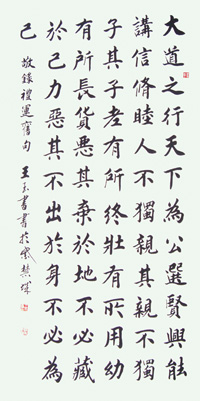 大道之行天下為公選賢與能
講信脩睦人不獨親其親不獨
子其子老有所終壯有所用幼
有所長貨惡其棄於地不必藏
於己力惡其不出於身不必為
己
敬錄禮運篇句 王玉書書於